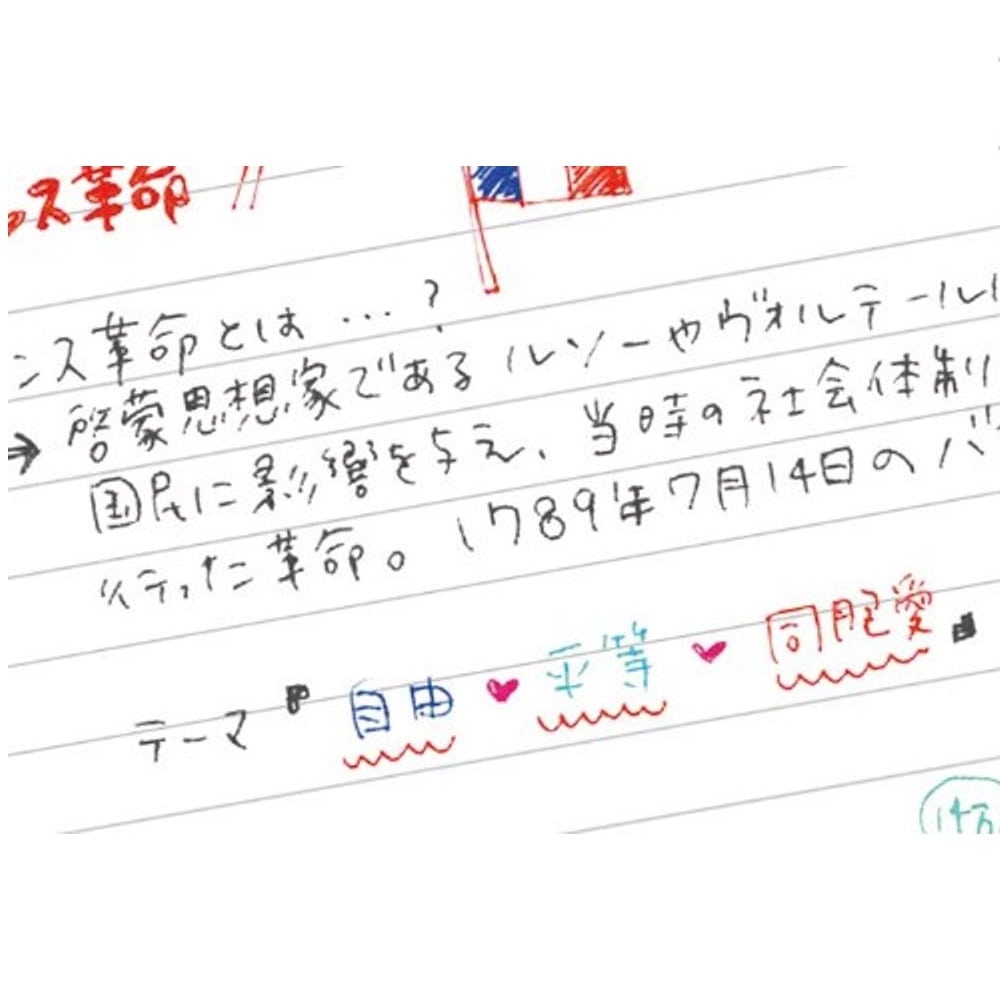 ンス革命 //
ンス革命とは…?
→ 啓蒙思想家であるルソーやヴォルテール
国民に影響を与え、当時の社会体制
行った革命。1789年7月14日のバ
テーマ『自由♥平等♥同胞愛』